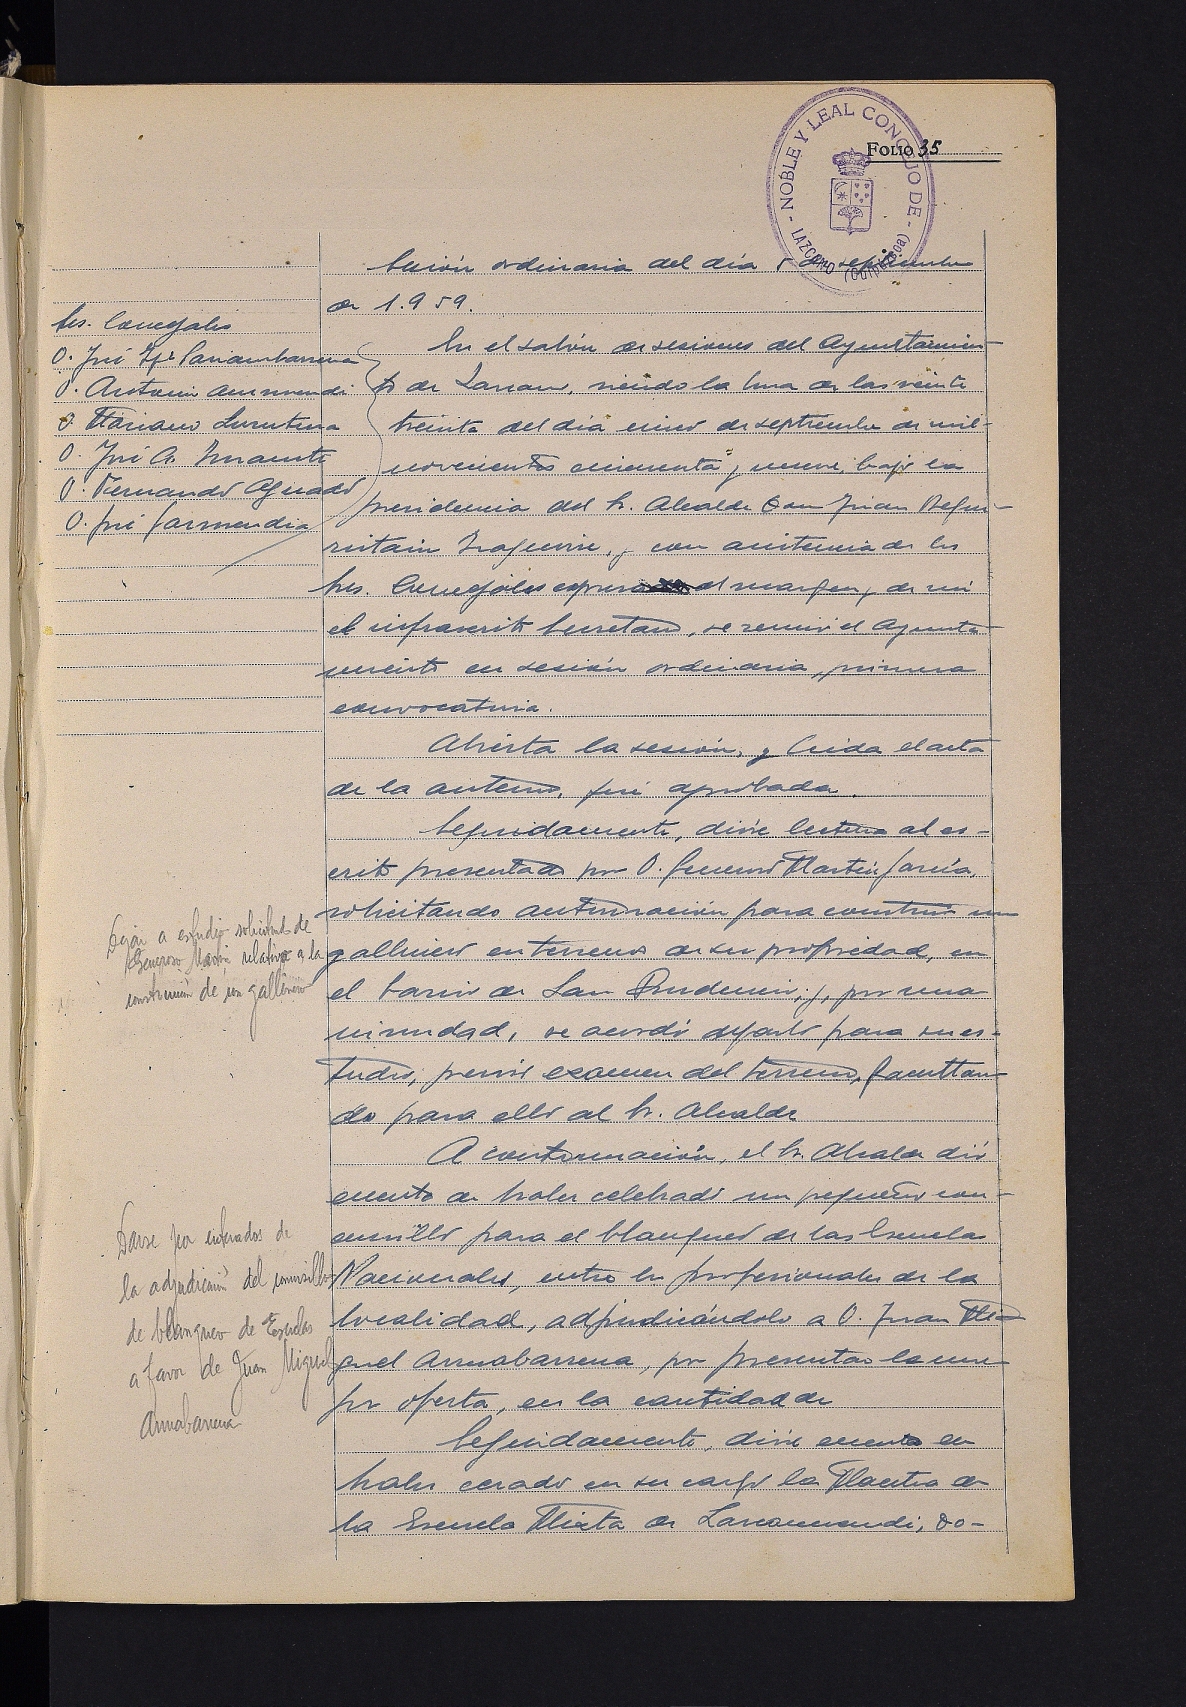 NOBLE Y LEAL CONCEJO DE
LAZCANO (Guipúzcoa)
FOLIO 35
Sesión ordinaria del día 5 de septiembre
de 1.959.
Sres. Concejales
D. José
D. Antonio
D. Mariano
D. José A.
D. Fernando Aguado
D. José Garmendia
En el salón de sesiones del Ayuntamien-
to de Lazcano, siendo la hora de las veinte
treinta del día cinco de septiembre de mil
novecientos cincuenta y nueve, bajo la
presidencia del Sr. Alcalde Don Juan
y con asistencia de los
Sres. Concejales al margen, y de mí
el infrascrito Secretario, se reunió el Ayunta-
miento en sesión ordinaria, primera
convocatoria.
Abierta la sesión, y leida el acta
de la anterior, fué aprobada.
Seguidamente, dióse lectura al es-
crito presentado por D. Generoso Martín García,
solicitando autorización para construir un
gallinero en terreno de su propiedad, en
el barrio de San Prudencio; y, por una-
nimidad, se acordó dejarlo para su es-
tudio, previo examen del terreno, facultan-
do para ello al Sr. Alcalde
Dejar a estudio solicitud de
Generoso Martín relativa a la
construcción de un gallinero
A continuación, el Sr. Alcalde dió
cuenta de haber celebrado un pequeño con-
cursillo para el blanqueo de las Escuelas
Nacionales, entre los profesionales de la
localidad, adjudicándolo a D. Juan Mi-
guel Arunabarrena, por presentar la me-
jor oferta, en la cantidad de
Darse por enterados de
la adjudicación del concursillo
de blanqueo de Escuelas
a favor de Juan Miguel
Arunabarrena
Seguidamente, dióse cuenta en
haber cesado en su cargo la Maestra de
la Escuela Mixta de Lazcanomendi, Do-